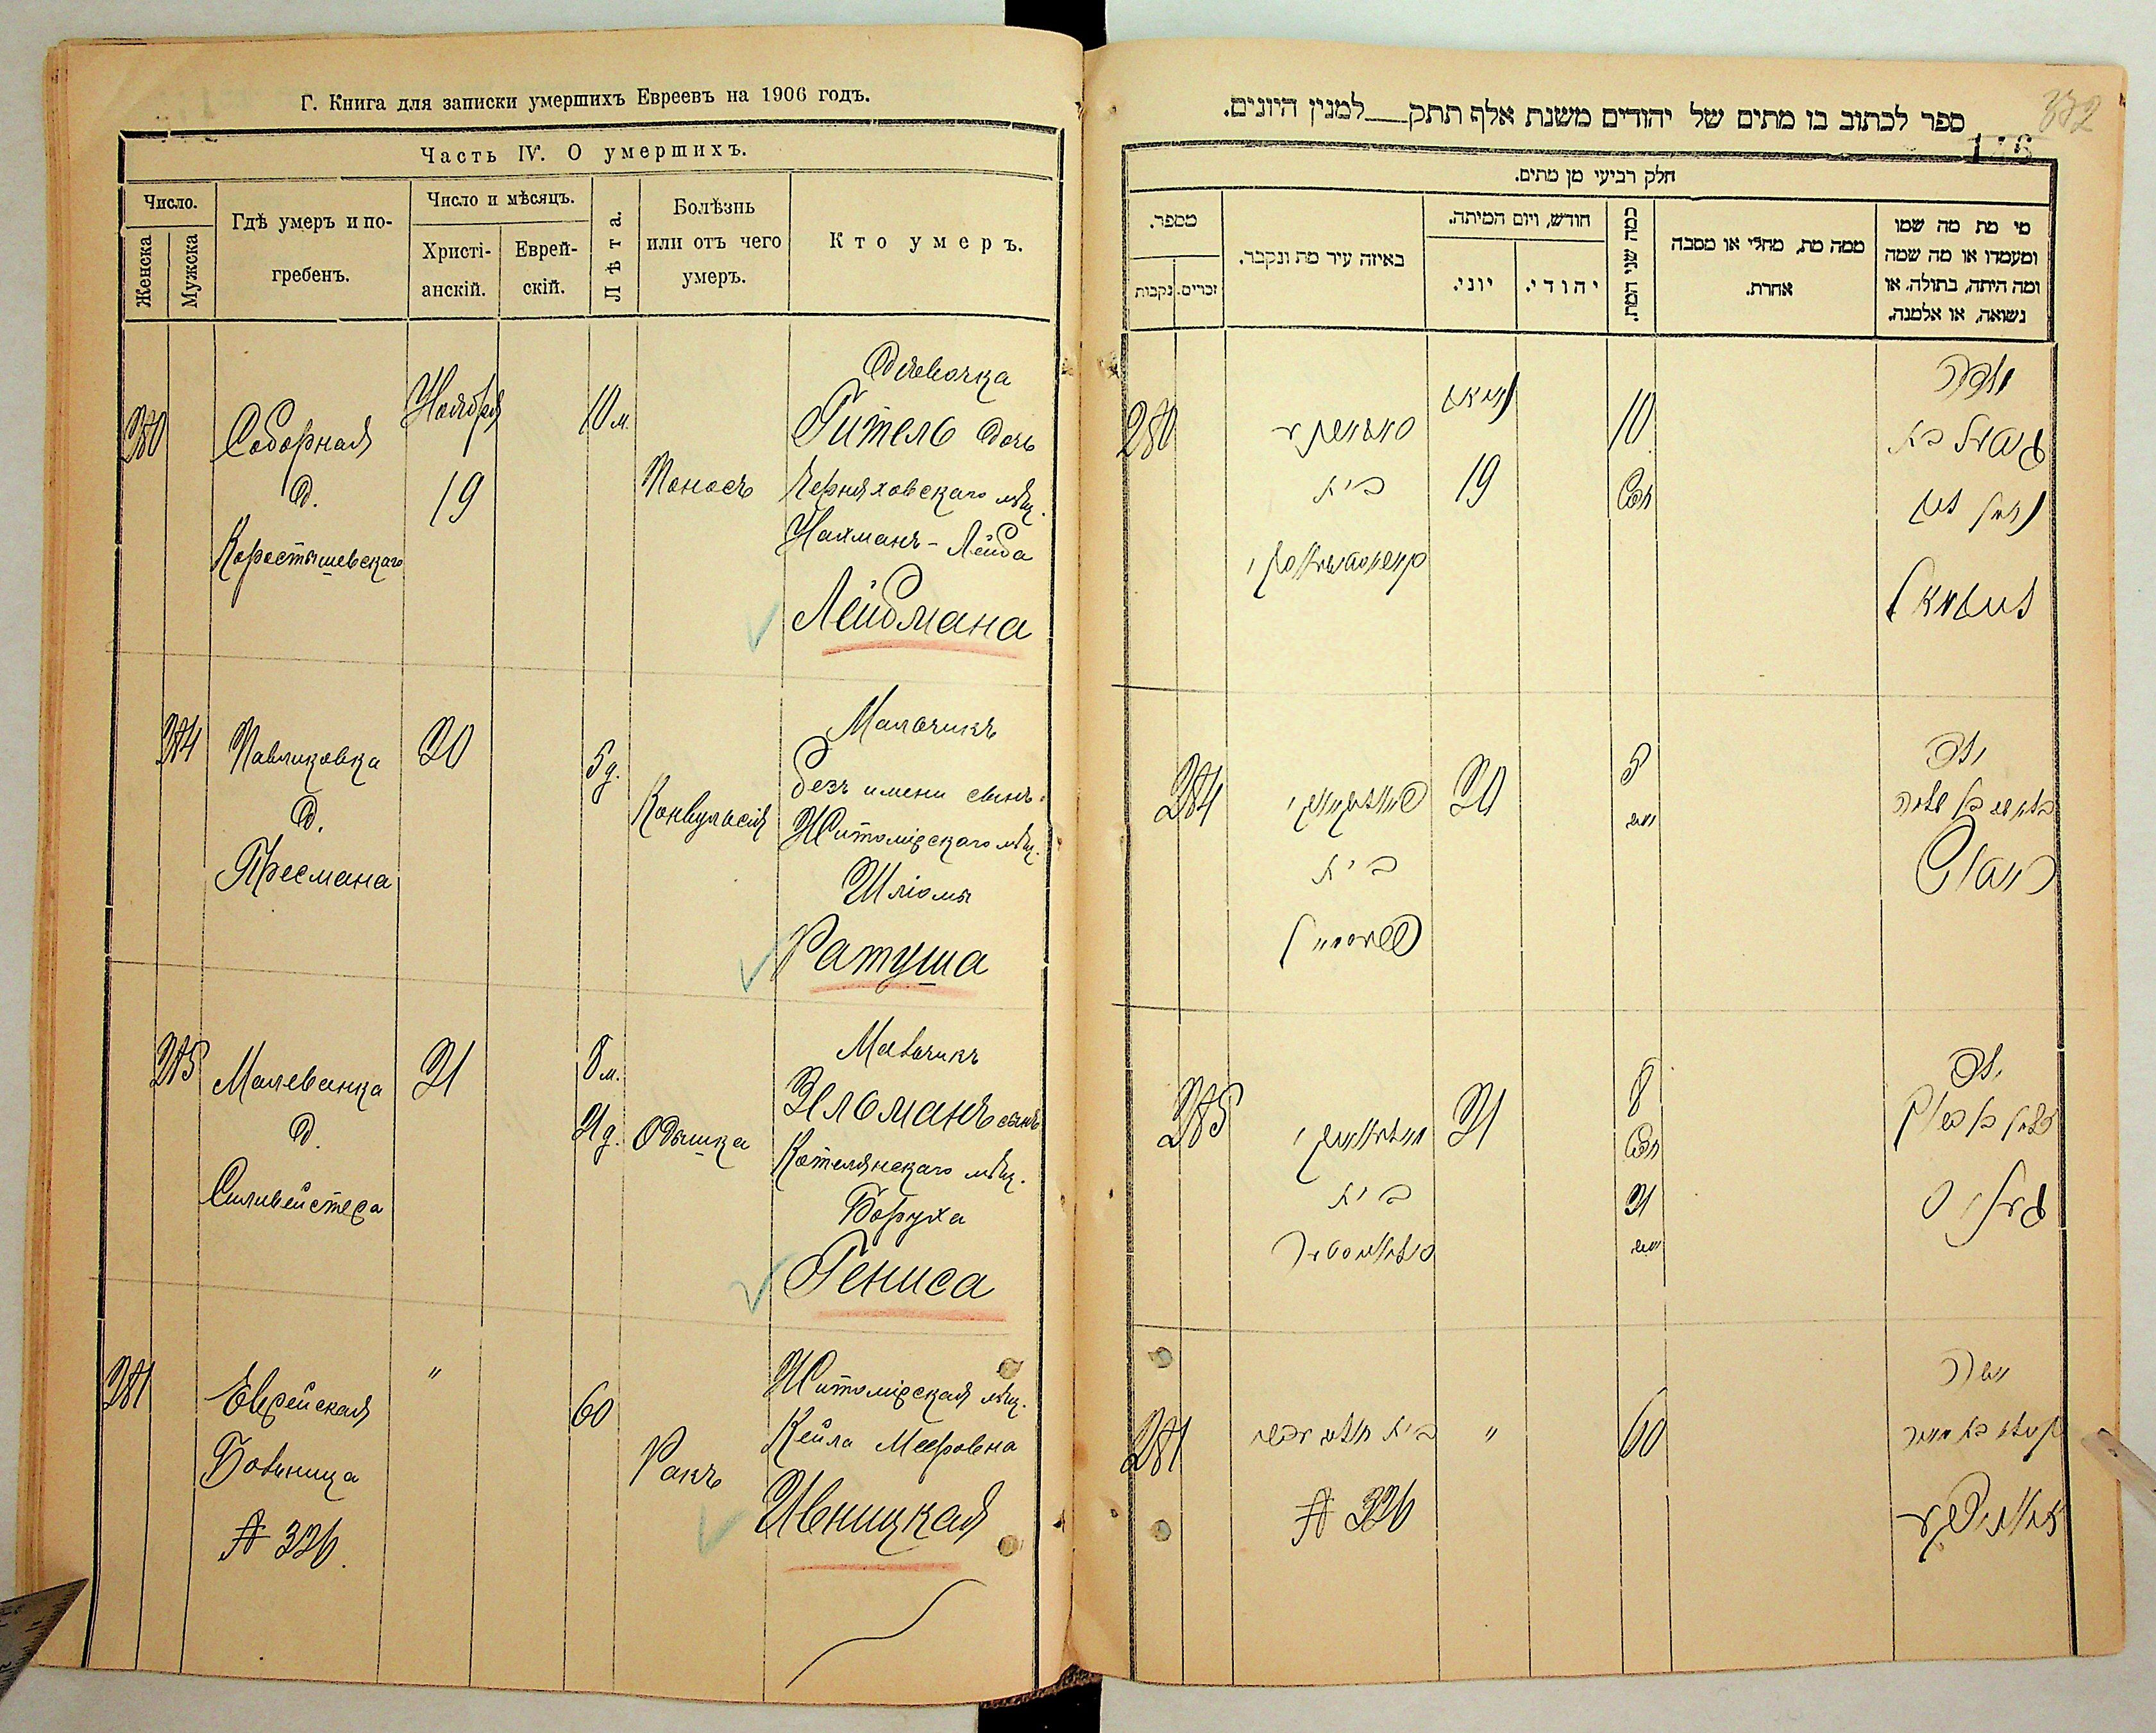 Г. Книга для записки умершихъ Евреевъ на 1906 годъ.
Часть IV. О умершихъ.
Число.
Женска
Мужска
Гдѣ умеръ и по-
гребенъ.
Число и мѣсяцъ.
Христі-
анскій.
Еврей-
скій.
Лѣта.
Болѣзнь
или отъ чего
умеръ.
Кто умеръ.
280
Соборная
д.
Коростышевскаго
Ноября
19
10 м.
Поносъ
Дѣвочка
Гитель дочь
Черняховскаго мѣщ.
Нахманъ-Лейба
Лейбмана
284
Павликовка
д.
Пресмана
20
5 д.
Конвульсія
Мальчикъ
безъ имени сынъ
Житомірскаго мѣщ.
Шлiомы
Ратуша
285
Малеванка
д.
Сильвейстера
21
8 м.
21 д.
Одышка
Мальчикъ
Зельманъ сынъ
Котелянскаго мѣщ.
Боруха
Гениса
281
Еврейская
Больница
№ 326.
"
60
Ракъ
Житомірская мѣщ.
Кейла Мееровна
Ивницкая
332
ספר לכתוב בו מתים של יהודים משנת אלף תתק למנין היונים.
חלק רביעי מן מתים.
מספר.
נקבות
זכרים.
באיזה עיר מת ונקבר.
חודש, ויום המיתה.
יוני.
יהודי.
כמה שני המת.
ממה מת, מחלי או מסבה
אחרת.
מי מת מה שמו
ומעמדו או מה שמה
ומה היתה, בתולה, או
נשואה, או אלמנה.
280
בית
19
10
ילדה
גיטל בת
נחמן לייב
לייבמאן
284
בית
20
5
ילד
285
בית
21
8
21
ילד
זלמן בן ברוך
281
"
60
אשה
№ 326